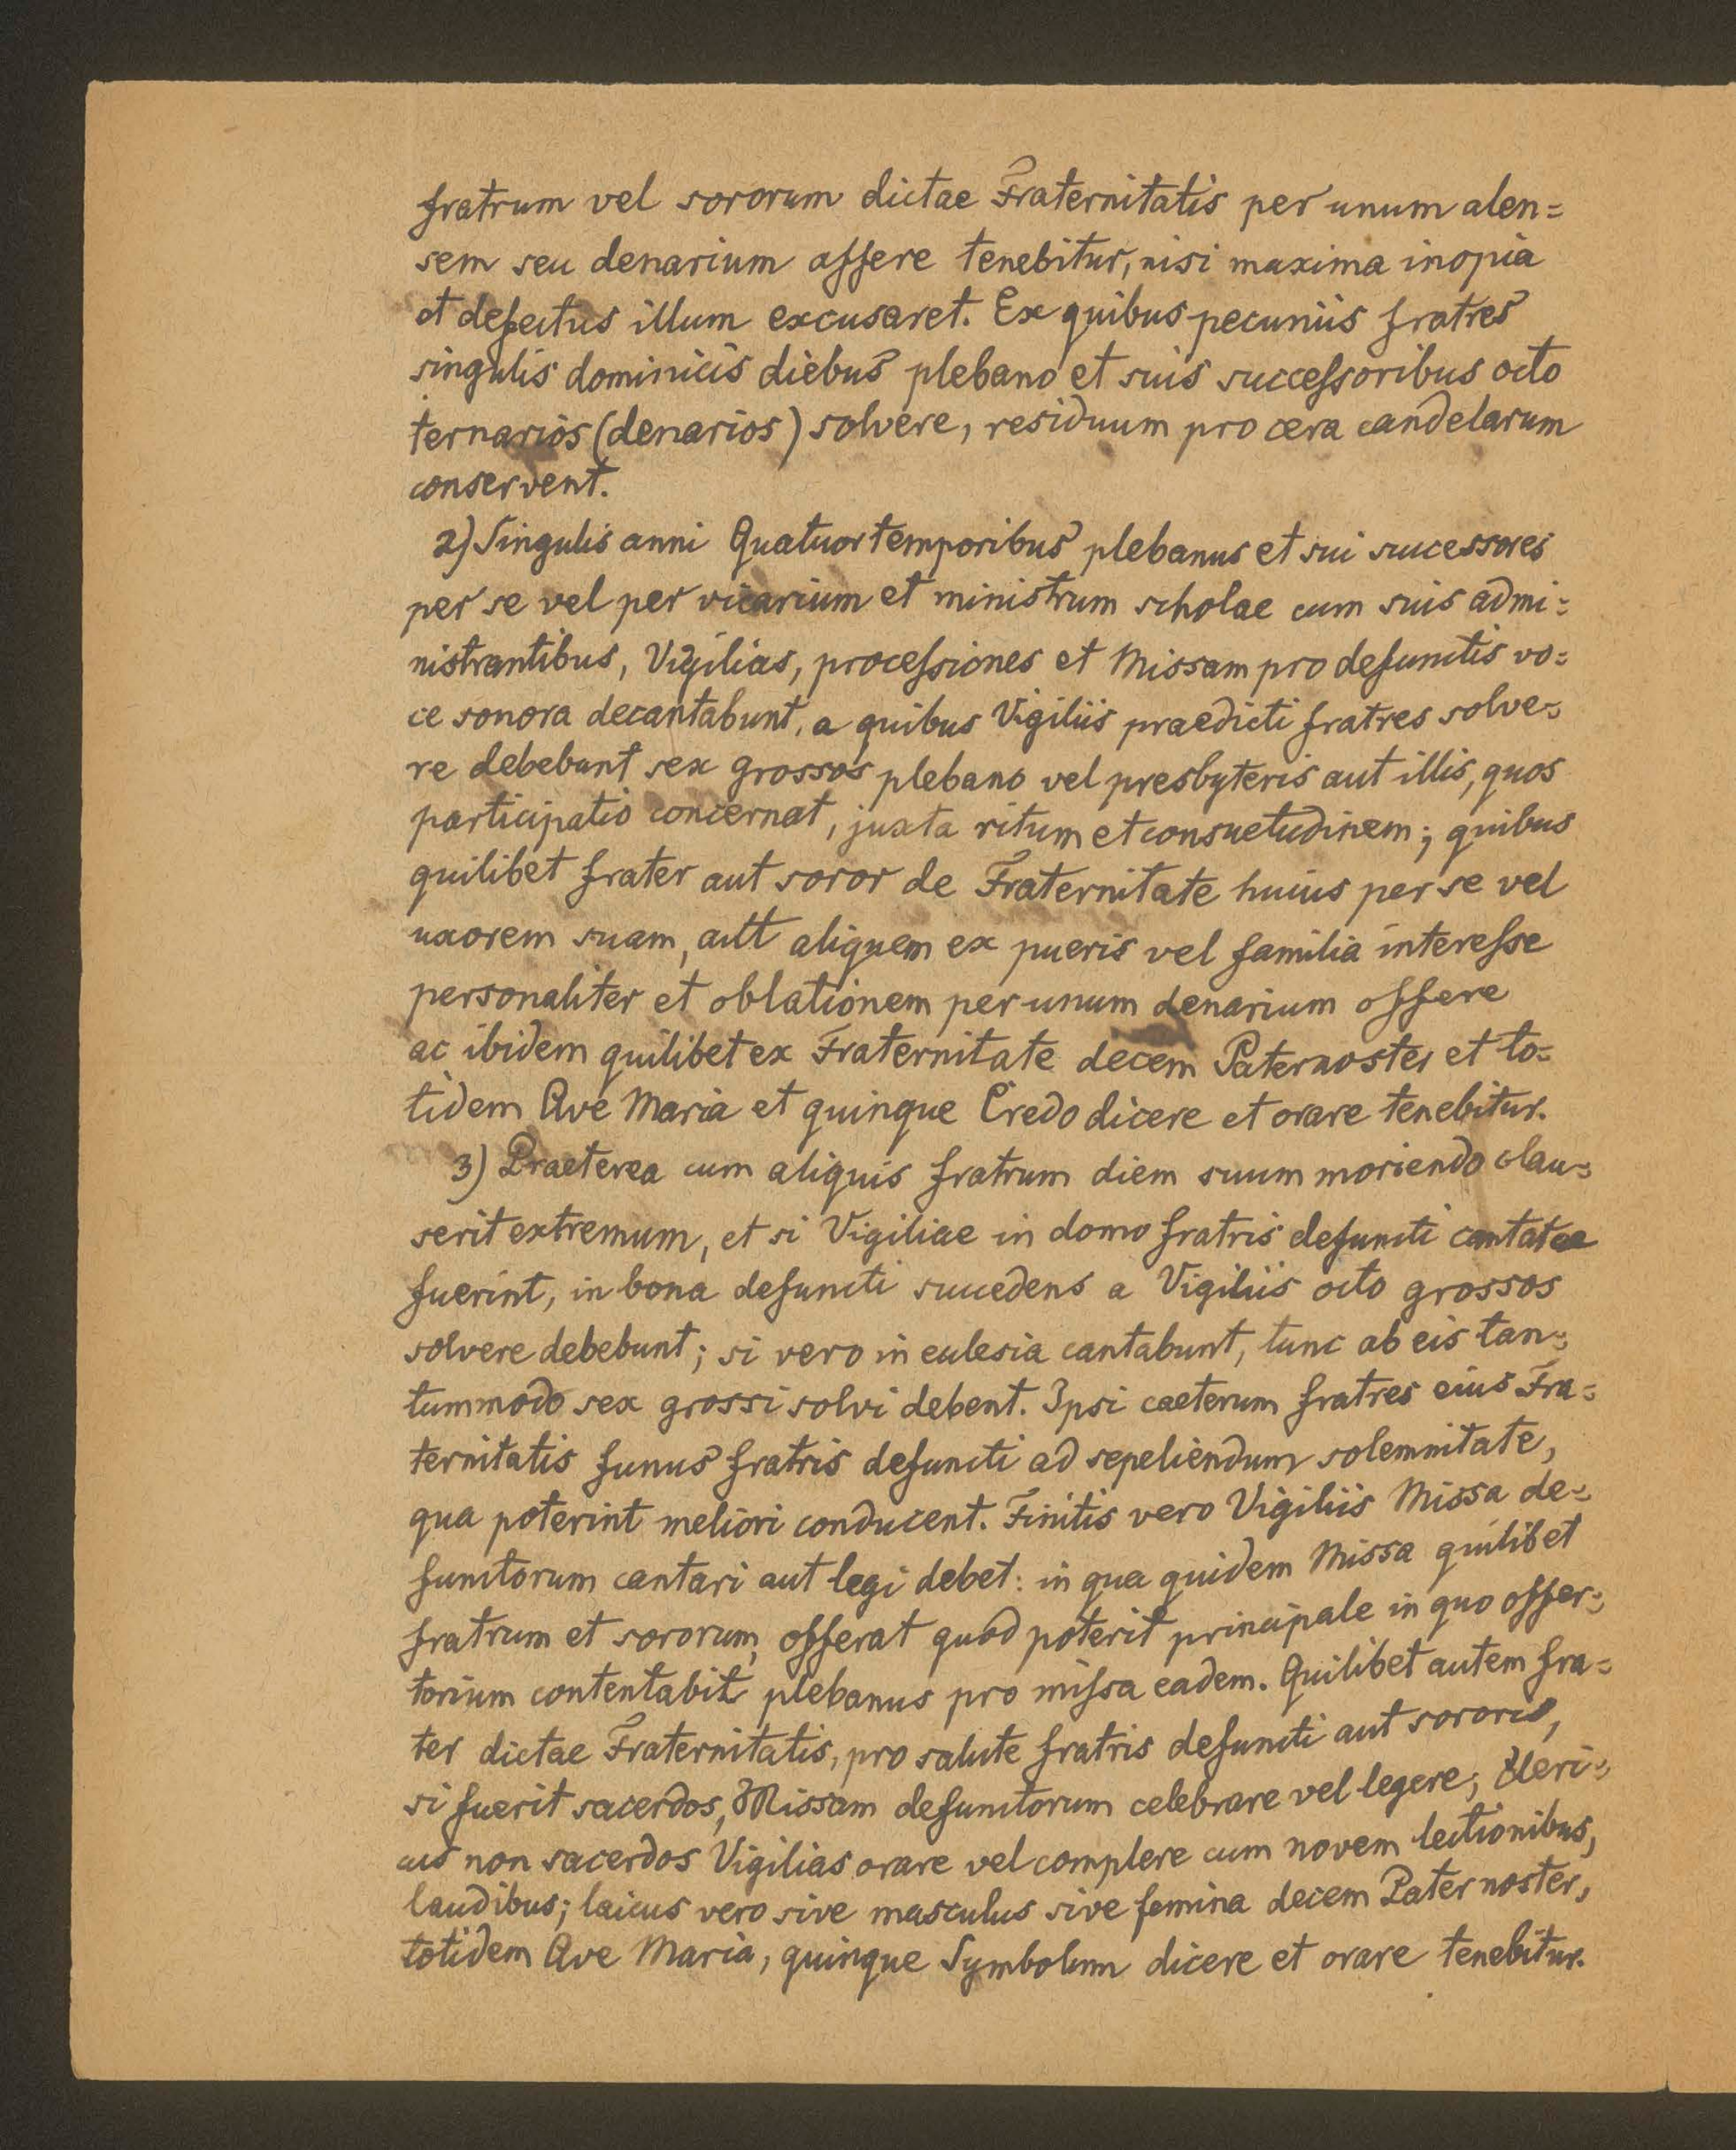 fratrum vel sororum dictae Fraternitatis per unum alen=
sem seu denarium offere tenebitur, nisi maxima inopia
et defectus illum excusaret. Ex quibus pecuniis fratres
singulis dominicis diebus plebano et suis succeſsoribus octo
ternarios (denarios) solvere, residuum pro cera candelarum
conservent.
2) Singulis anni Quatuor temporibus plebanus et sui successores
per se vel per vicarium et ministrum scholae cum suis admi=
nistrantibus, Vigilias, proceſsiones et Missam pro defunctis vo=
ce sonora decantabunt, a quibus Vigiliis praedicti fratres solve=
re debebunt sex grossos plebano vel presbyteris aut illis, quos
participatio concernat, juxta ritum et consuetudinem; quibus
quilibet frater aut soror de Fraternitate huius per se vel
uxorem suam, aut aliquem ex pueris vel familia intereſse
personaliter et oblationem per unum denarium offere
ac ibidem quilibet ex Fraternitate decem Paternoster et to=
tidem Ave Maria et quinque Credo dicere et orare tenebitur.
3) Praeterea cum aliquis fratrum diem suum moriendo clau=
serit extremum, et si Vigiliae in domo fratris defuncti cantatae
fuerint, in bona defuncti succedens a Vigiliis octo grossos
solvere debebunt; si vero in eclesia cantabunt, tunc ab eis tan=
tummodo sex grossi solvi debent. Ipsi caeterum fratres eius Fra=
ternitatis funus fratris defuncti ad sepeliendum solemnitate,
qua poterint meliori conducent. Finitis vero Vigiliis Missa de=
functorum cantari aut legi debet: in qua quidem Missa quilibet
fratrum et sororum, offerat quod poterit principale in quo offer=
torium contentabit plebanus pro miſsa eadem. Quilibet autem fra=
ter dictae Fraternitatis, pro salute fratris defuncti aut sororis,
si fuerit sacerdos, Missam defunctorum celebrare vel legere; Cleri=
cus non sacerdos Vigilias orare vel complere cum novem lectionibus,
laudibus; laicus vero sive masculus sive femina decem Pater noster,
totidem Ave Maria, quinque Symbolum dicere et orare tenebitur.